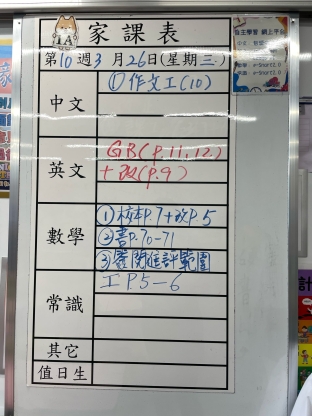 1A
家課表
第10週3月26日(星期三)
中文
①作文工(10)
英文
GB(P.11,12)
+改(P.9)
數學
①校本P.7+改P.5
②書P.70-71
③簽閱進評範圍
常識
工P.5-6
其它
值日生
自主學習 網上平台